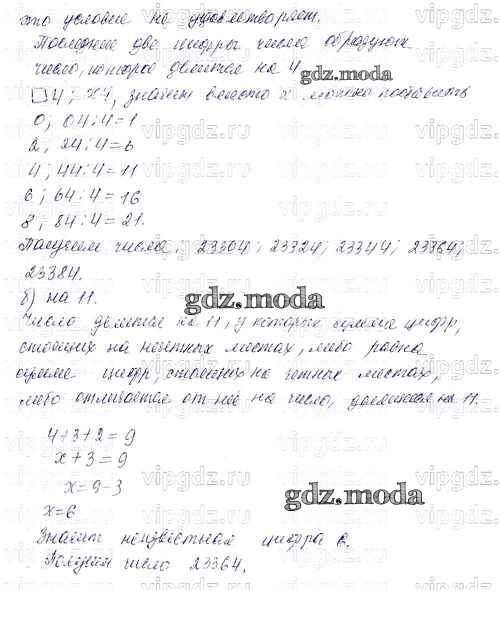 это условие не удовлетворяет.
Последние две цифры числа образуют
число, которое делится на 4.
□4; x4, значит вместо x можно поставить
0; 04:4=1
2; 24:4=6
4; 44:4=11
6; 64:4=16
8; 84:4=21.
Получим числа: 23304; 23324; 23344; 23364;
23384.
б) на 11.
Число делится на 11, у которых сумма цифр,
стоящих на нечетных местах, либо равна
сумме цифр, стоящих на четных местах,
либо отличается от неё на число, делимое на 11.
4+3+2=9
x+3=9
x=9-3
x=6
Значит неизвестная цифра 6.
Получим число 23364.
gdz.moda
gdz.moda
gdz.moda
vipgdz.ru